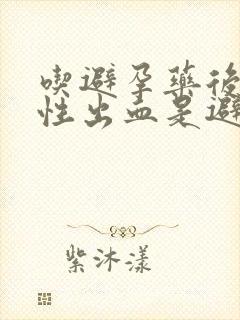 喫避孕藥後
性出血是避
紫沐漾